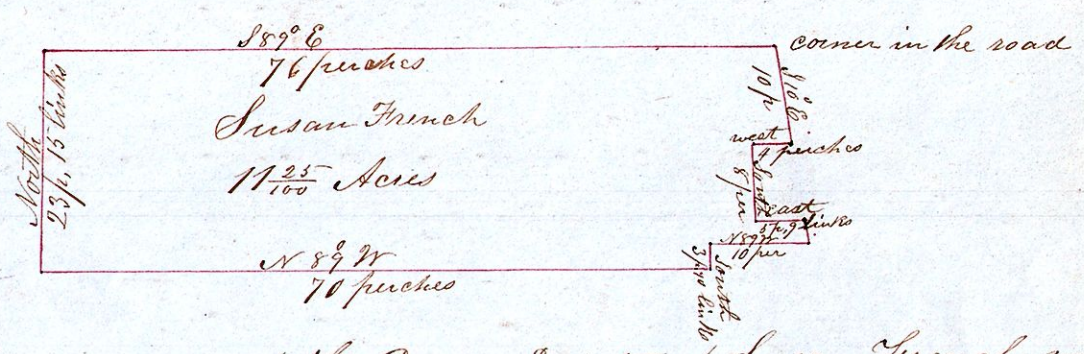 S 89° E
76 perches
corner in the road
North
23 p, 15 links
Susan French
11 25/100 Acres
S 10° E
10 p
west
4 perches
South
8 per
east
5 p, 9 links
N 89 W
10 per
South
N 89° W
70 perches